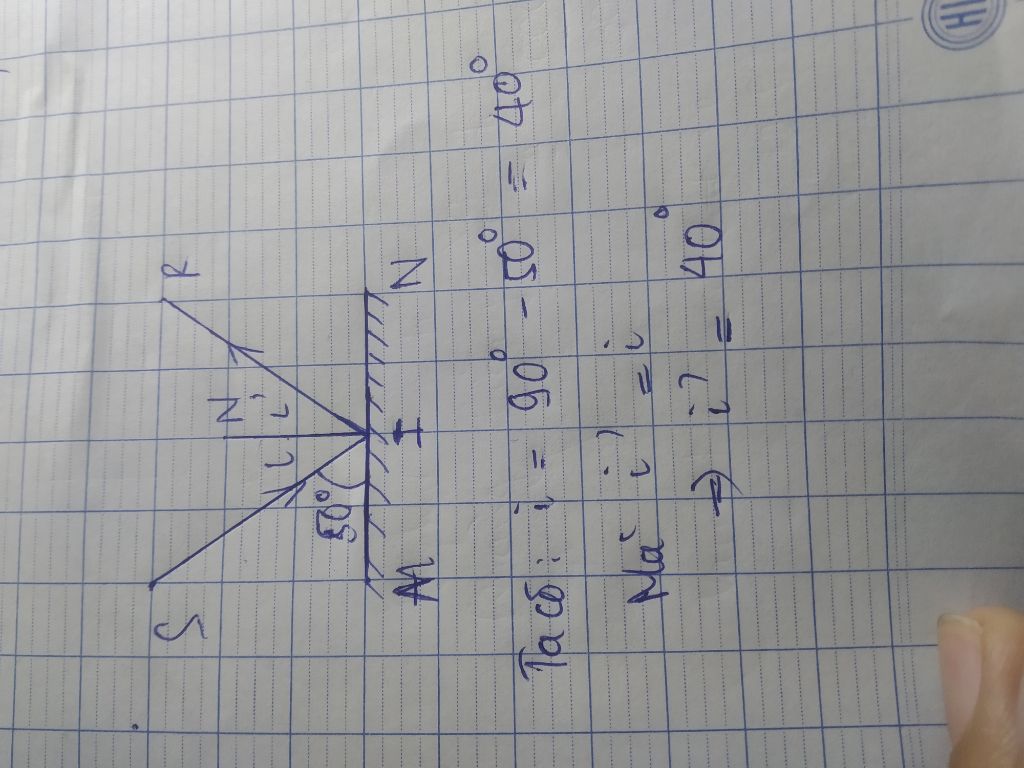 S
R
N
i i'
50°
M I N
Ta có: i = 90° - 50° = 40°
Mà i' = i
=> i' = 40°